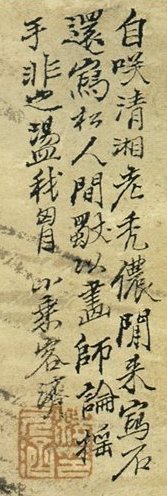 自咲清湘老禿儂閒來寫石
還寫松人間以畫師論摇
手非也盪我胷小乘客濟